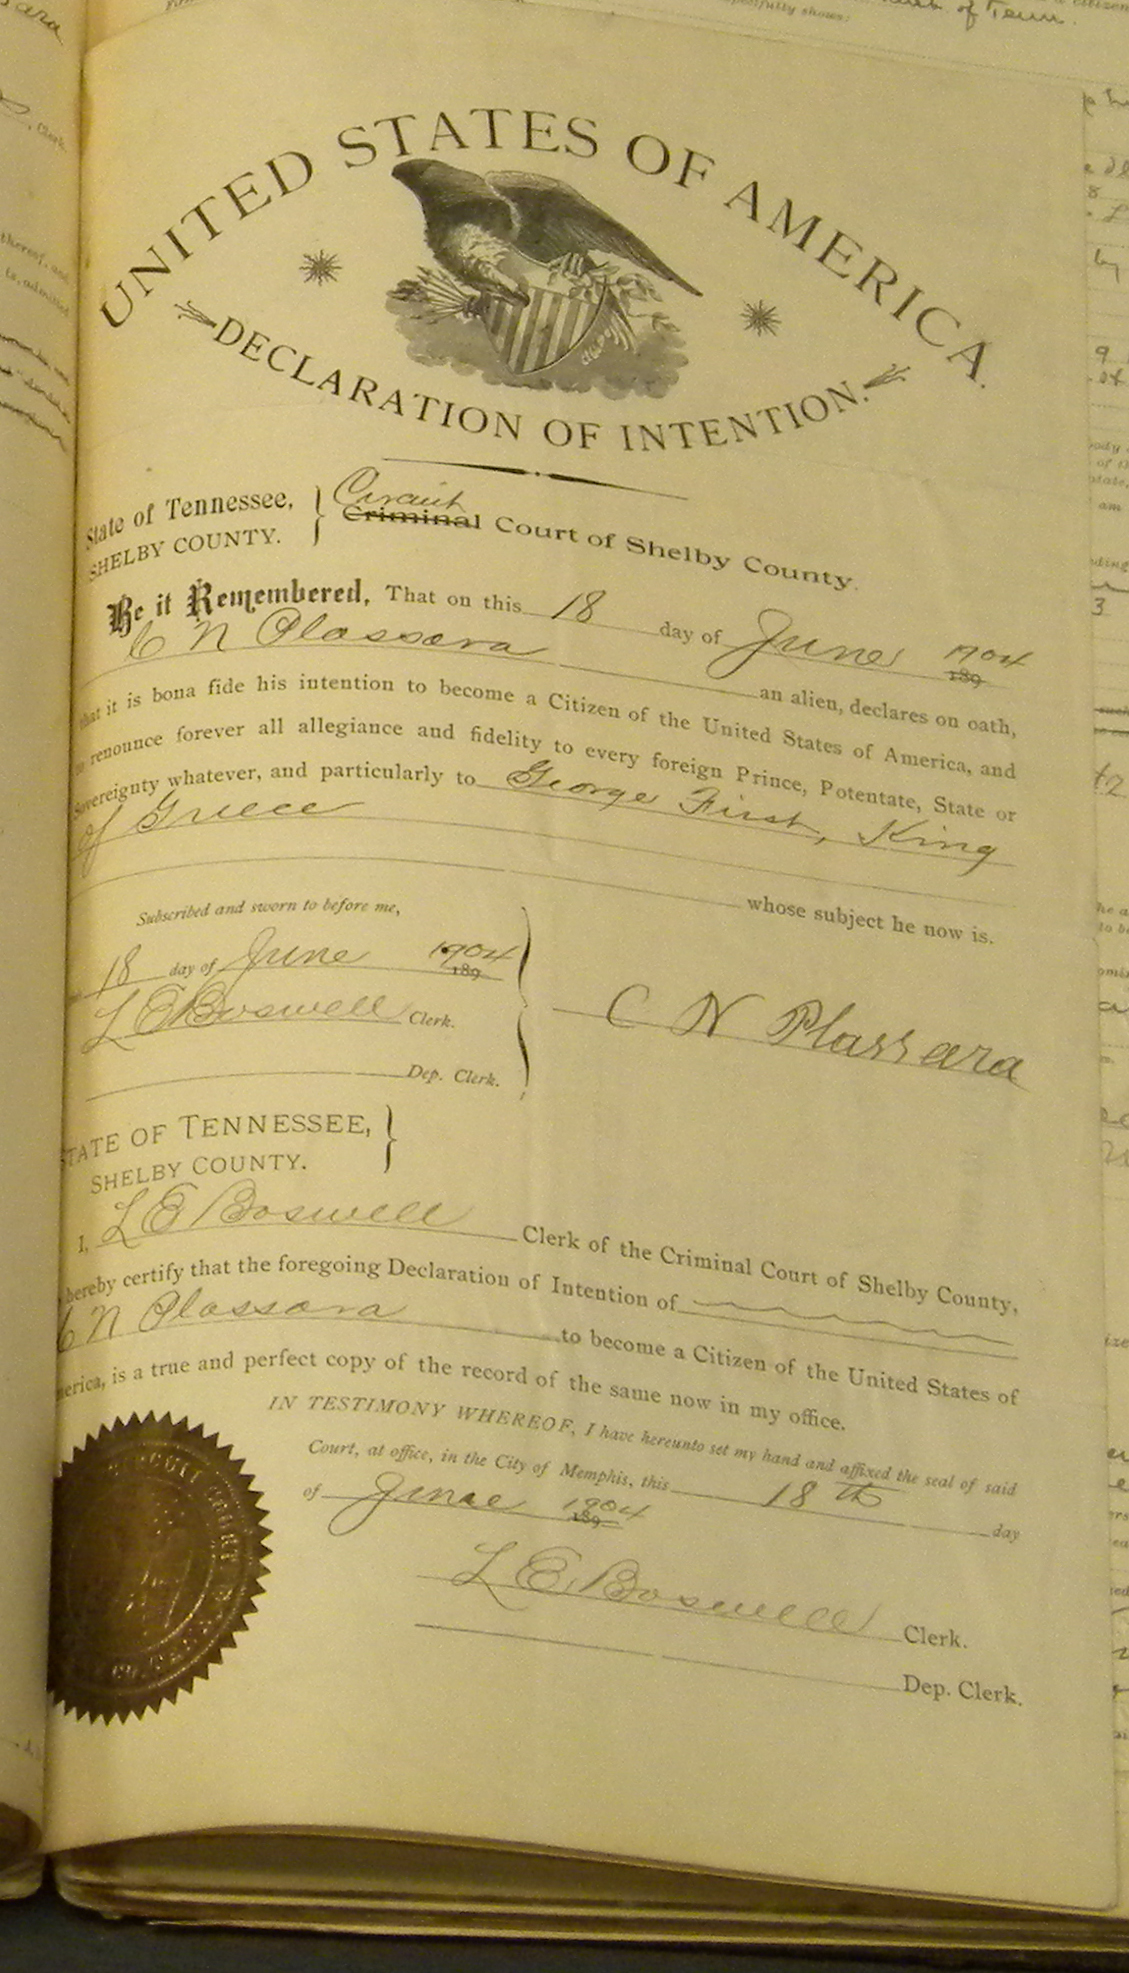 UNITED STATES OF AMERICA.
DECLARATION OF INTENTION.
State of Tennessee,
SHELBY COUNTY.
Circuit
Criminal Court of Shelby County.
Be it Remembered, That on this 18 day of June 1904 189
C N Plassara an alien, declares on oath,
that it is bona fide his intention to become a Citizen of the United States of America, and
to renounce forever all allegiance and fidelity to every foreign Prince, Potentate, State or
Sovereignty whatever, and particularly to George First, King
of Greece
whose subject he now is.
Subscribed and sworn to before me,
18 day of June 1904 189
L E Boswell Clerk.
Dep. Clerk.
C N Plassara
STATE OF TENNESSEE,
SHELBY COUNTY.
I, L E Boswell Clerk of the Criminal Court of Shelby County,
hereby certify that the foregoing Declaration of Intention of
C N Plassara to become a Citizen of the United States of
merica, is a true and perfect copy of the record of the same now in my office.
IN TESTIMONY WHEREOF, I have hereunto set my hand and affixed the seal of said
Court, at office, in the City of Memphis, this 18th day
of June 1904 189
L E Boswell Clerk.
Dep. Clerk.